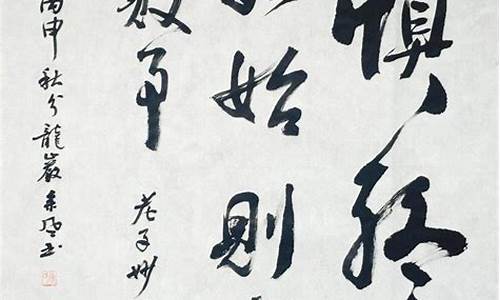 慎終
如始則
敗事
老子妙
丙申秋分龍巖